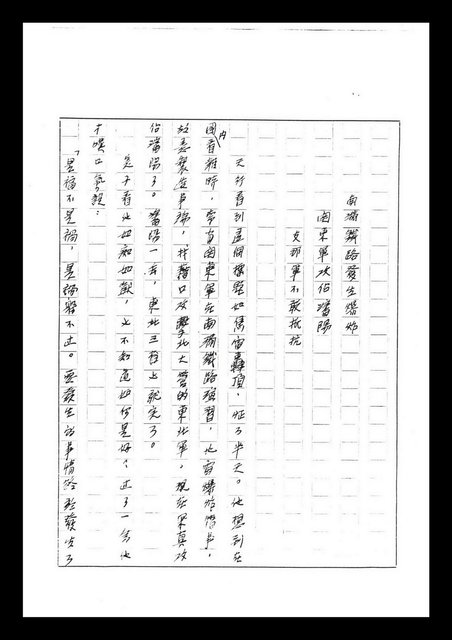 南滿鐵路發生爆炸
關東軍攻佔瀋陽
支那軍不敢抵抗
天行看到這個標題如像雷轟頂，怔了半天。他想到在
國內看報時，常有關東軍在南滿鐵路演習，
故意製造事端，找藉口攻擊北大營的東北軍，現在果真攻
佔瀋陽了。瀋陽一丟，東北三省也就完了。
看他如痴如獃，也不知道如何是好，過了一會他
才嘆口氣說：
「是福不是禍，是禍躲不過。要發生的事情終於發生了